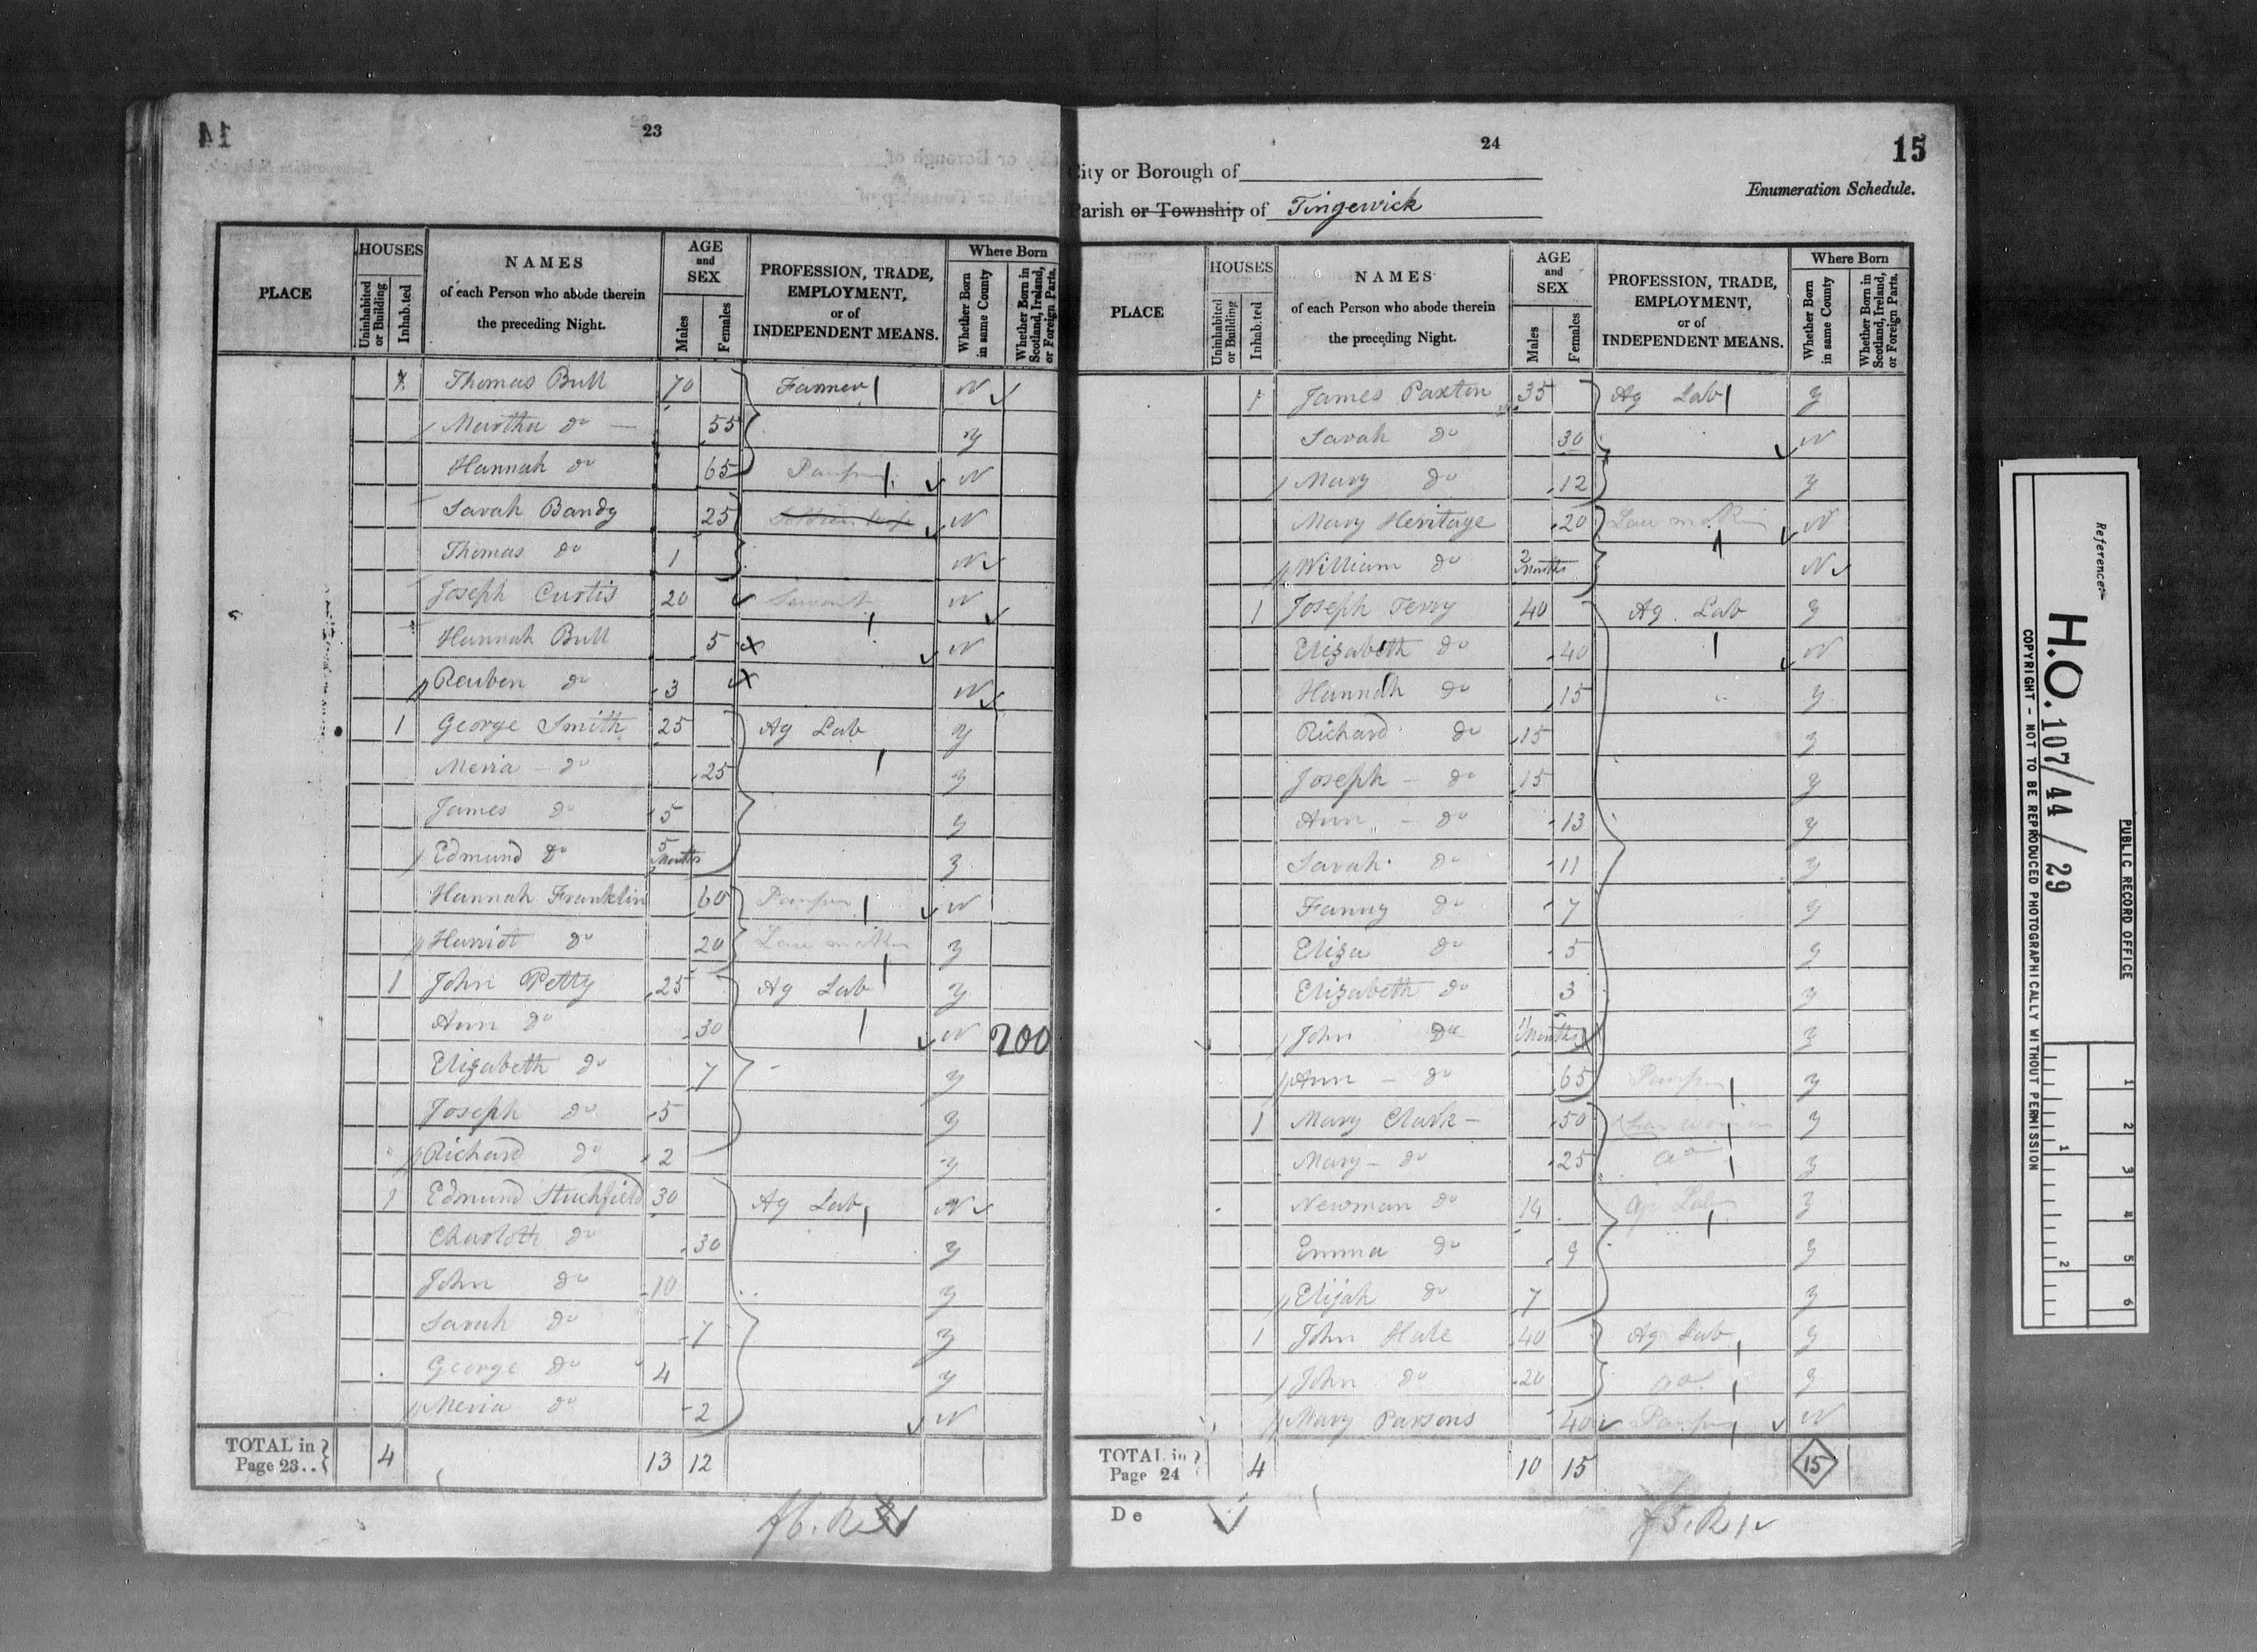 23
PLACE HOUSES Uninhabited or Building Inhabited NAMES of each Person who abode therein the preceding Night. AGE and SEX Males Females PROFESSION, TRADE, EMPLOYMENT, or of INDEPENDENT MEANS. Where Born Whether Born in same County Whether Born in Scotland, Ireland, or Foreign Parts.
1 Thomas Bull 70 Farmer N
Martha do 55 y
Hannah do 65 Pauper N
Sarah Bandy 25 N
Thomas do 1 N
Joseph Curtis 20 Servant N
Hannah Bull 5 N
Reuben do 3 N
1 George Smith 25 Ag Lab y
Meria do 25 y
James do 5 y
Edmund do 5 Months y
Hannah Franklin 60 Pauper N
Harriot do 20 y
1 John Petty 25 Ag Lab y
Ann do 30 N 200
Elizabeth do 7 y
Joseph do 5 y
Richard do 2 y
1 Edmund Stuchfield 30 Ag Lab N
Charloth do 30 y
John do 10 y
Sarah do 7 y
George do 4 y
Meria do 2 N
TOTAL in Page 23.. 4 13 12
24
15
City or Borough of
Enumeration Schedule.
Parish or Township of Tingewick
PLACE HOUSES Uninhabited or Building Inhabited NAMES of each Person who abode therein the preceding Night. AGE and SEX Males Females PROFESSION, TRADE, EMPLOYMENT, or of INDEPENDENT MEANS. Where Born Whether Born in same County Whether Born in Scotland, Ireland, or Foreign Parts.
1 James Paxton 35 Ag Lab y
Sarah do 30 N
Mary do 12 y
Mary Heritage 20 N
William do 2 Months N
1 Joseph Terry 40 Ag. Lab y
Elizabeth do 40 N
Hannah do 15 y
Richard do 15 y
Joseph do 15 y
Ann do 13 y
Sarah do 11 y
Fanny do 7 y
Eliza do 5 y
Elizabeth do 3 y
John do Months y
Ann do 65 Pauper y
1 Mary Clark 50 y
Mary do 25 do y
Newman do 14 Ag Lab y
Emma do 9 y
Elijah do 7 y
1 John Hale 40 Ag Lab y
John do 20 do y
Mary Parsons 40 Pauper N
TOTAL in Page 24 4 10 15 15
De
Reference:-
H.O. 107/44/29
PUBLIC RECORD OFFICE
COPYRIGHT - NOT TO BE REPRODUCED PHOTOGRAPHICALLY WITHOUT PERMISSION
1 2 3 4 5 6
1 2